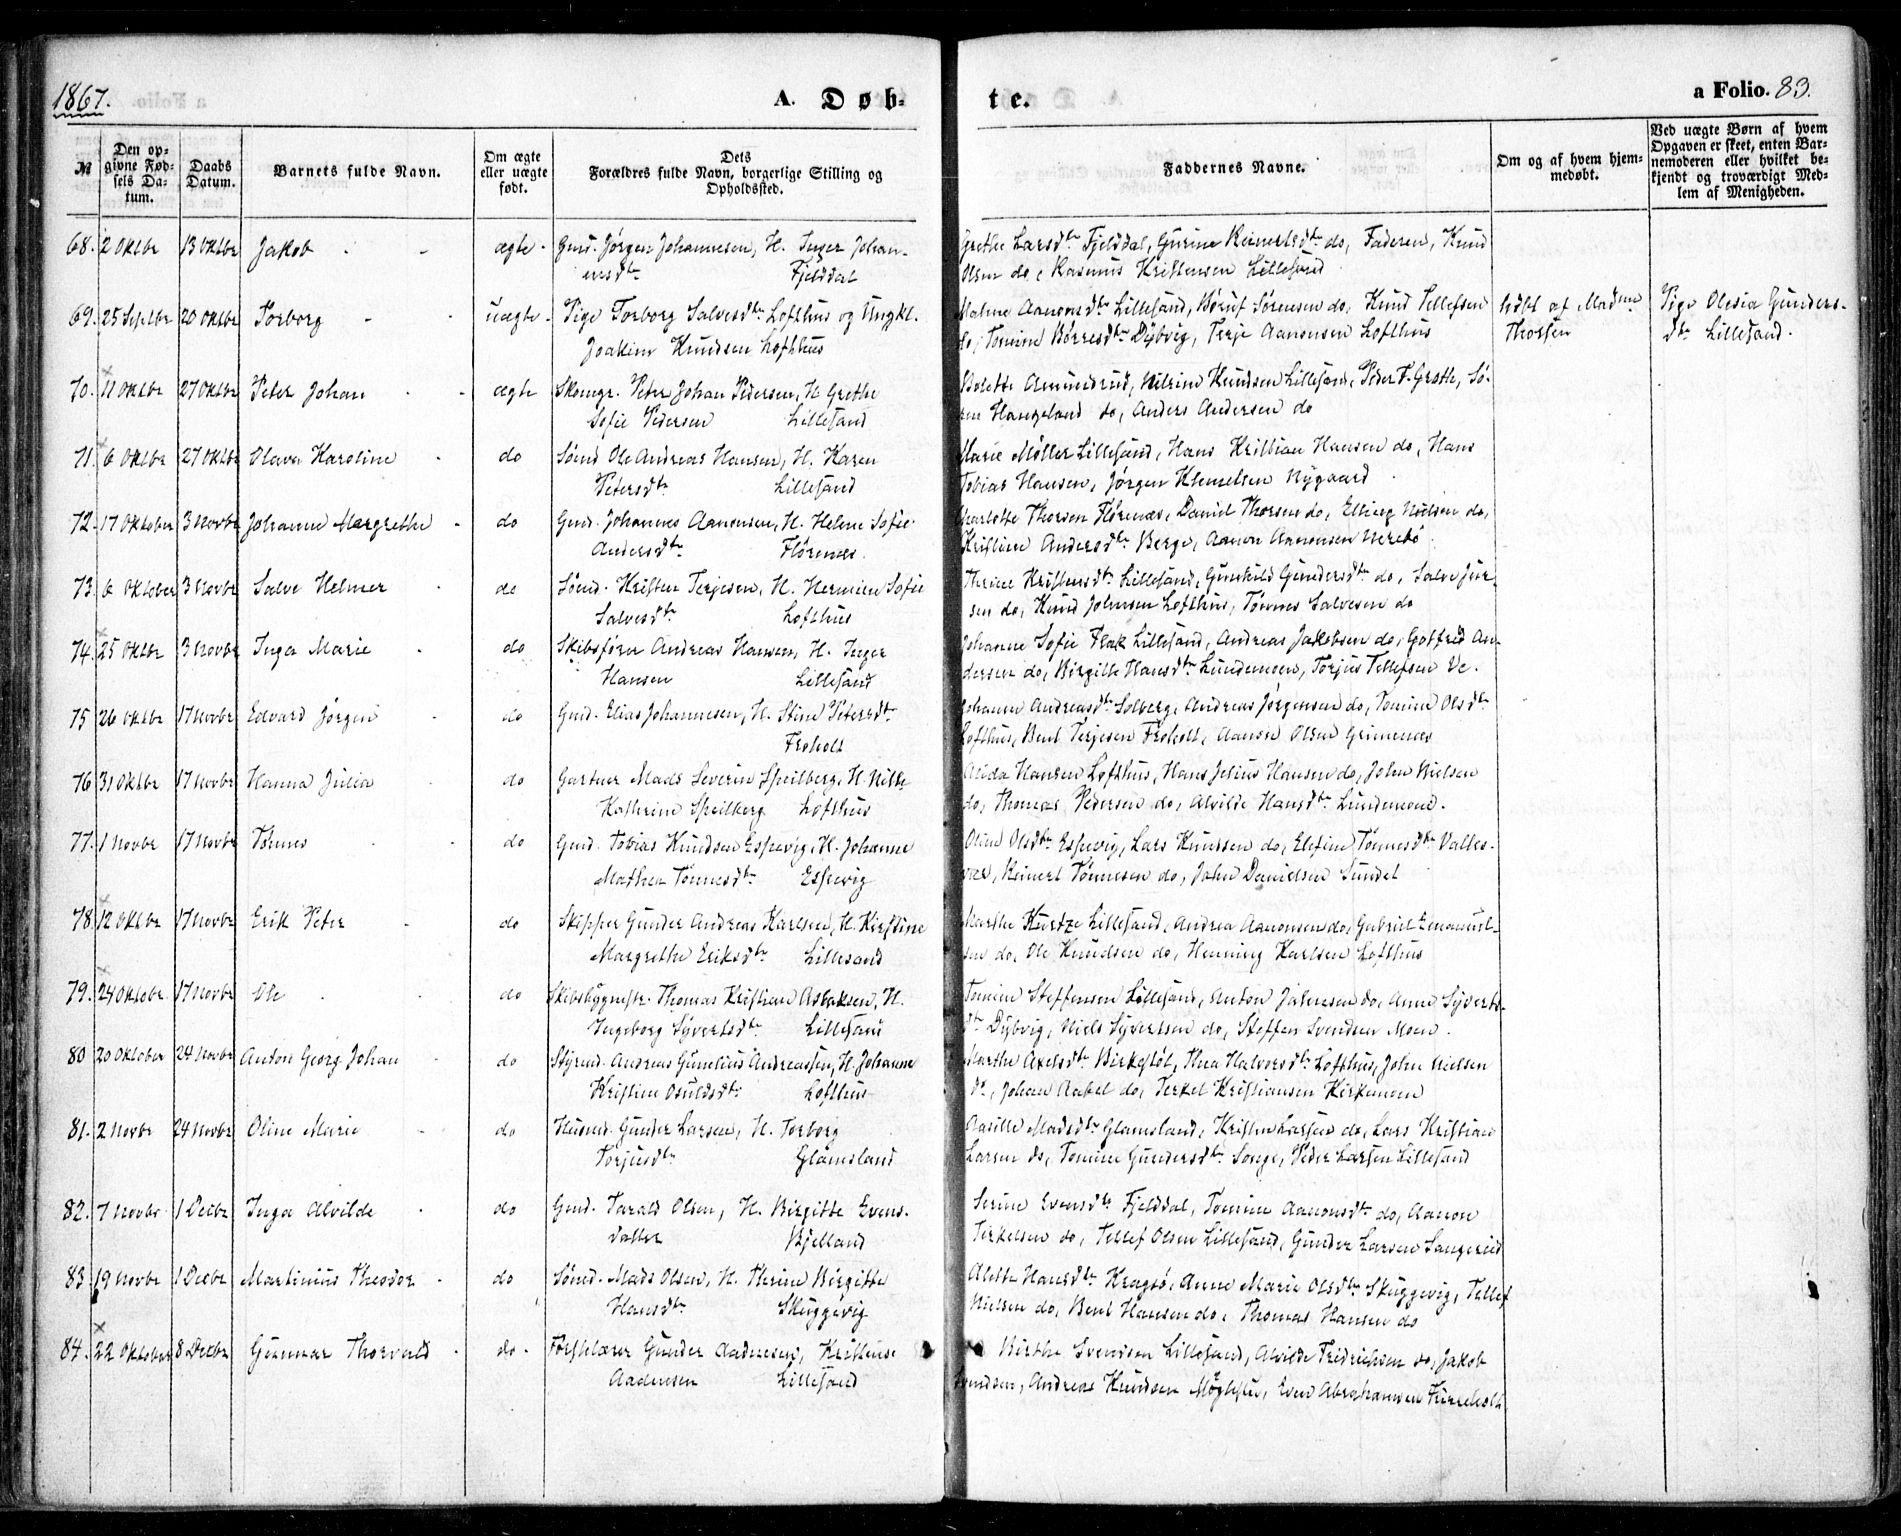 1867.
A. Døb-
te.
a Folio. 83.
№
Den opgivne Fødsels Datum.
Daabs Datum.
Barnets fulde Navn.
Om ægte eller uægte født.
Dets Forældres fulde Navn, borgerlige Stilling og Opholdssted.
Faddernes Navne.
Om og af hvem hjemmedøbt.
Ved uægte Børn af hvem Opgaven er skeet, enten Barnemoderen eller hvilket bekjendt og troværdigt Medlem af Menigheden.
68. 2 Oktbr 13 Oktbr Jakob ægte Gmd. Jørgen Johannesen, H. Inger Johan- Grethe Larsdtr Fjelddal, Gurine Reinertsdtr do, Faderen, Knud
nesdtr Fjelddal Olsen do, Rasmus Kristensen Lillesand
69. 25 Septbr 20 Oktbr Torborg uægte Pige Torborg Salvesdtr Lofthus og Ungkl. Malene Aanonsdtr Lillesand, Børuf Sørensen do, Knud Tellefsen Pige Olesia Gunders-
Joakim Knudsen Lofthus do, Tomine Børresdtr Dybvig, Terje Aanonsen Lofthus dtr Lillesand.
70. 11 Oktbr 27 Oktbr Peter Johan ægte Skomgr. Peter Johan Pedersen, H. Grethe Knudsen Lillesand, Peder T. Grothe, Sø-
Sofie Pedersen Lillesand ren Haugeland do, Anders Andersen do
71. 6 Oktbr 27 Oktbr Olava Karoline do Sømd Ole Andreas Hansen, H. Karen Marie Møller Lillesand, Hans Kristian Hansen do, Hans
Petersdtr Lillesand Tobias Hansen, Jørgen Klemetsen Nygaard
72. 17 Oktober 3 Novbr Johanne Margrethe do Gmd. Johannes Aanonsen, H. Helene Sofie Charlotte Thorsen Flørenæs, Daniel Thorsen do, Elling Nielsen do,
Andersdtr Flørenæs. Kristine Andersdtr Berge, Aanon Aanonsen
73. 6 Oktober 3 Novbr Salve Helmer do Sømd. Kristen Terjesen, H. Hermine Sofie Thrine Kristensdtr Lillesand, Gunhild Gundersdtr do, Salve Jør-
Salvesdtr Lofthus sen do, Knud Johnsen Lofthus, Tønnes Salvesen do
74. 25 Oktbr 3 Novbr Inga Marie do Skibsfører Andreas Hansen, H. Inger Johanne Sofie Flak Lillesand, Andreas Jakobsen do, Gotfred An-
Hansen Lillesand dersen do, Birgithe Hansdtr Lundemoen, Torjus Tellefsen Ve.
75 26 Oktbr 17 Novbr Edvard Jørgen do Gmd. Elias Johannesen, H. Stine Petersdtr Johanne Andreasdtr Solberg, Andreas Jørgensen do, Tomine Olsdtr
Froholt Lofthus, Bent Terjesen Froholt, Aanon Olsen Grimenæs
76 31 Oktbr 17 Novbr Hanna Julia do Gartner Mads Severin Speilberg, H. Alida Hansen Lofthus, Hans Julius Hansen do, John Nielsen
Kathrine Speilberg Lofthus do, Thomas Pedersen do, Alvilde Hansdtr Lundemoen.
77. 1 Novbr 17 Novbr Tønnes do Gmd. Tobias Knudsen Espevig, H. Johanne Oline Olsdtr Espevig, Lars Knudsen do, Elefine Tønnesdtr Valles-
Mathea Tønnesdtr Espevig vær, Reinert Tønnesen do, John Danielsen Sundet
78. 12 Oktbr 17 Novbr Erik Peter do Skipper Gunder Andreas Karlsen, H. Kirstine Marthe Kurtze Lillesand, Andrea Aanonsen do, Gabriel Emanuel-
Margrethe Eriksdtr Lillesand sen do, Ole Knudsen do, Henning Karlsen Lofthus
79. 24 Oktobr 17 Novbr Ole do Skibsbygmstr. Thomas Kristian Aslaksen, H. Tomine Steffensen Lillesand, Anton Jakobsen do, Anne Syverts-
Ingeborg Syvertsdtr Lillesand dtr Dybvig, Niels Syvertsen do, Steffen Svendsen Moen.
80 20 Oktober 24 Novbr Anton Georg Johan do Styrmd. Andreas Gunelius Andreassen, H. Johanne Marthe Axelsdtr Birkestøl, Thea Halvorsdtr Lofthus, John Nielsen
Kristine Osuldsdtr Lofthus do, Johan Aabel do, Terkel Kristiansen Kirkemoen
81. 2 Novbr 24 Novbr Oline Marie do Husmd. Gunder Larsen, H. Torborg Aasille Madsdtr Glamsland, Kristen Larsen do, Lars Kristian
Torjusdtr Glamsland Larsen do, Tomine Gundersdtr Songe, Peder Larsen Lillesand
82. 7 Novbr 1 Decbr Inga Alvilde do Gmd. Tarald Olsen, H. Birgitte Evens- Serine Evensdtr Fjelddal, Tomine Aanonsdtr do, Aanon
datter Bjelland Terkelsen do, Tellef Olsen Lillesand, Gunder Larsen Sangereid
83. 19 Novbr 1 Decbr Martinius Theodor do Sømd. Mads Olsen, H. Therine Birgitte Alette Hansdtr Kragsø, Anne Marie Olsdtr Skuggevig, Tellef
Hansdtr Skuggevig Nielsen do, Bent Hansen do, Thomas Hansen do
84. 22 Oktober 8 Decbr Gunnar Thorvald do Gunder Aadnesen, Kristense Birthe Svendsen Lillesand, Alvilde Fredrichsen do, Jakob
Aadnesen Lillesand Svendsen, Andreas Knudsen Møglestu, Even Abrahamsen